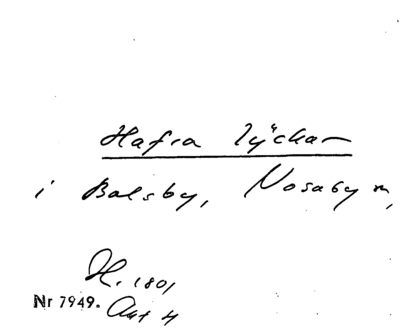 Hafra lyckar
i Balsby, Nosaby sn,
H. 1801
Nr 7949. Akt 4